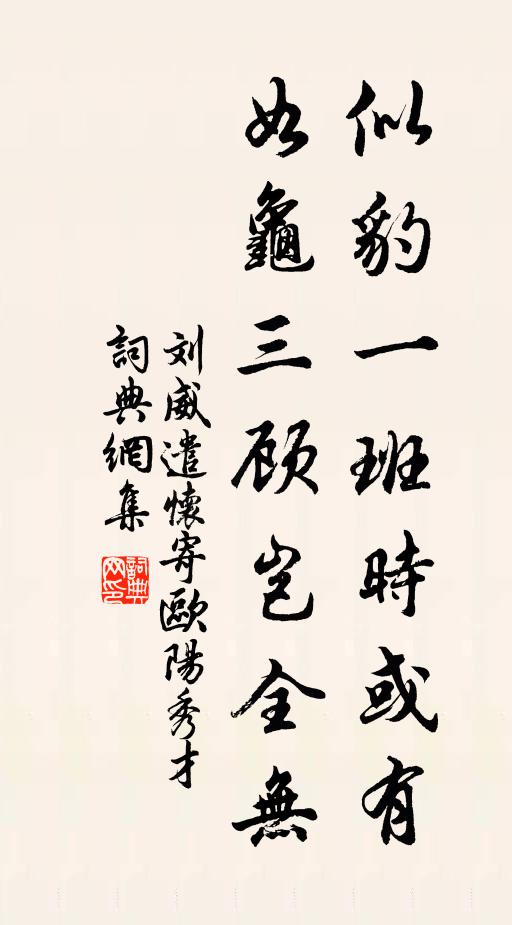 似豹一班時或有
如龜三顾岂全無
刘威遣懷寄歐陽秀才
詞典網集
詞典网印